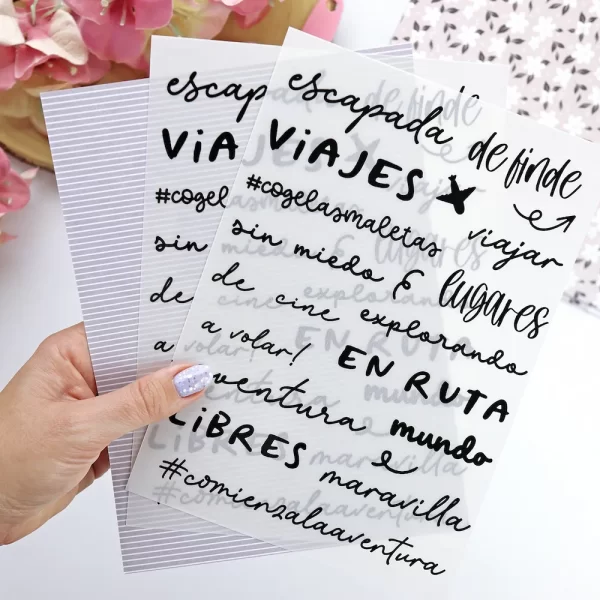 escapada de finde
ViAJES
#cogelasmaletas viajar
sin miedo & lugares
de cine explorando
a volar! EN RUTA
aventura mundo
LiBRES maravilla
#comienzalaaventura
escap
ViA
#cogel
sin
de
a